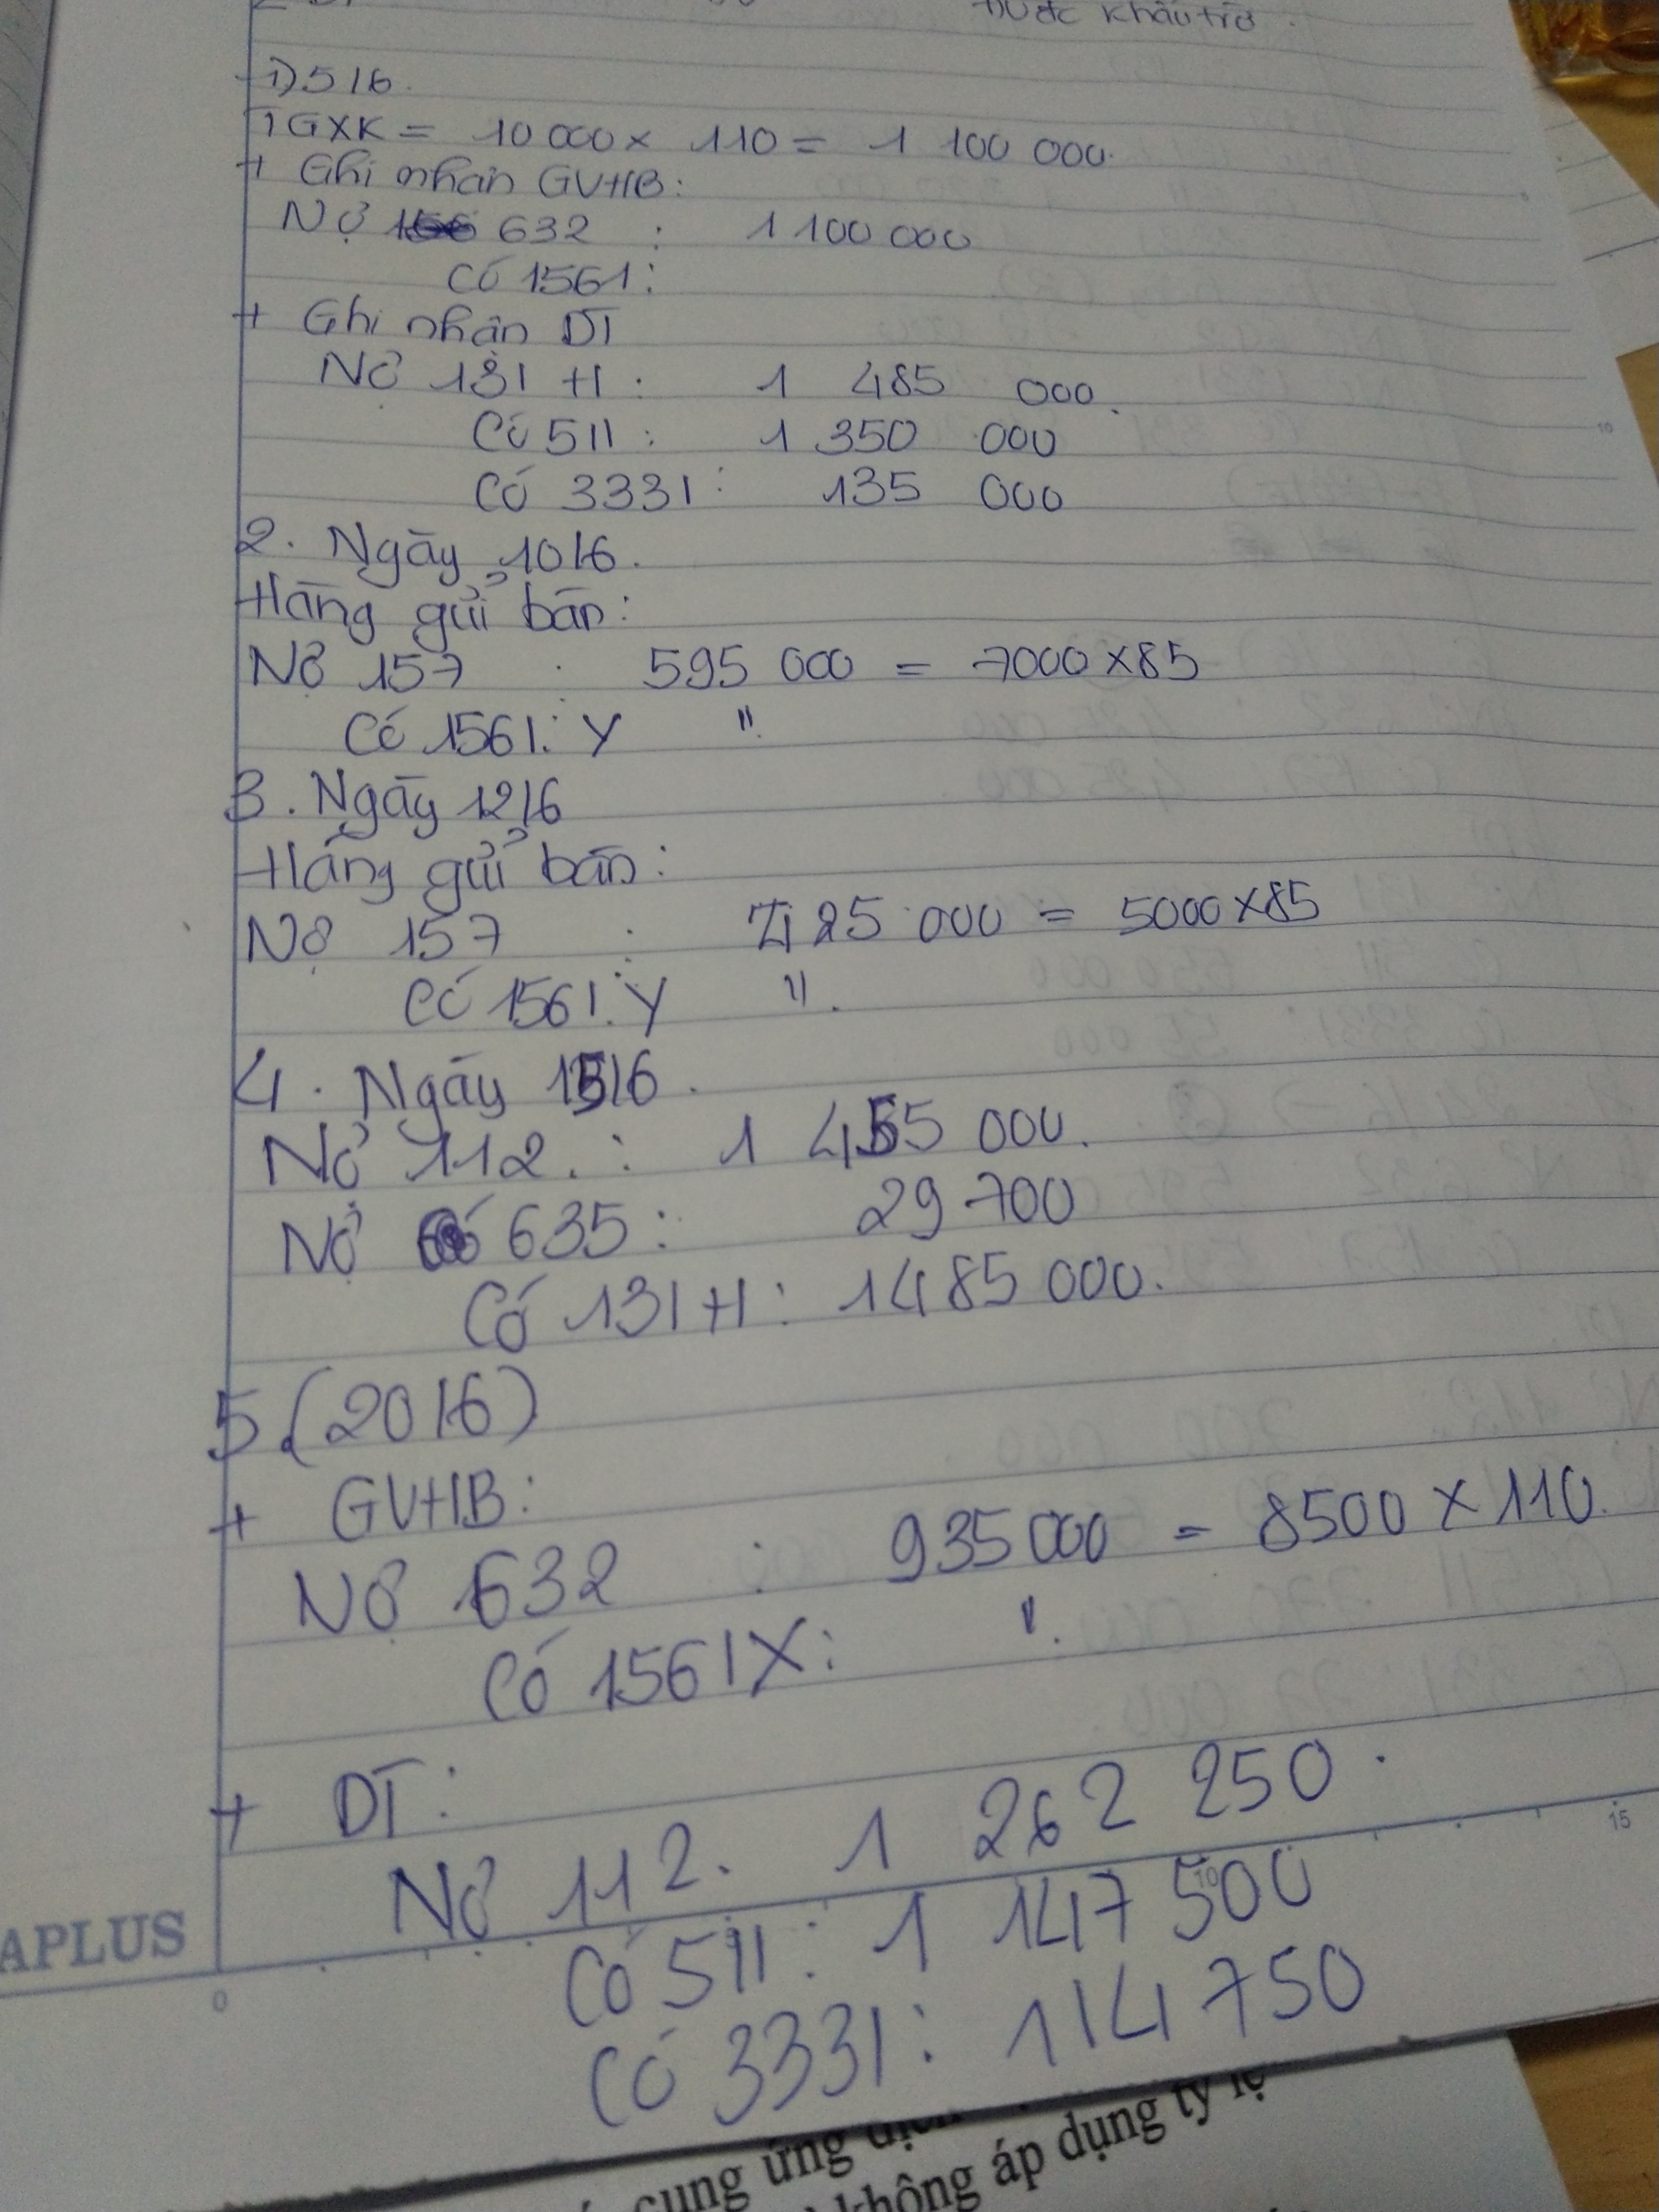 Được khấu trừ.
1) 5/6.
TGXK = 10 000 x 110 = 1 100 000.
+ Ghi nhận GVHB:
Nợ 632 : 1 100 000
Có 1561:
+ Ghi nhận DT
Nợ 131 H : 1 485 000.
Có 511 : 1 350 000
Có 3331 : 135 000
2. Ngày 10/6.
Hàng gửi bán:
Nợ 157 : 595 000 = 7000 x 85
Có 1561: Y "
3. Ngày 12/6
Hàng gửi bán:
Nợ 157 : 425 000 = 5000 x 85
Có 1561: Y ".
4. Ngày 15/6.
Nợ 112. : 1 455 000.
Nợ 635 : 29 700
Có 131 H : 1 485 000.
5. (20/6)
+ GVHB:
Nợ 632 : 935 000 = 8500 x 110.
Có 1561X: ".
+ DT:
Nợ 112. 1 262 250.
Có 511 : 1 147 500
Có 3331 : 114 750
APLUS
0 10 15
cung ứng
không áp dụng tỷ lệ